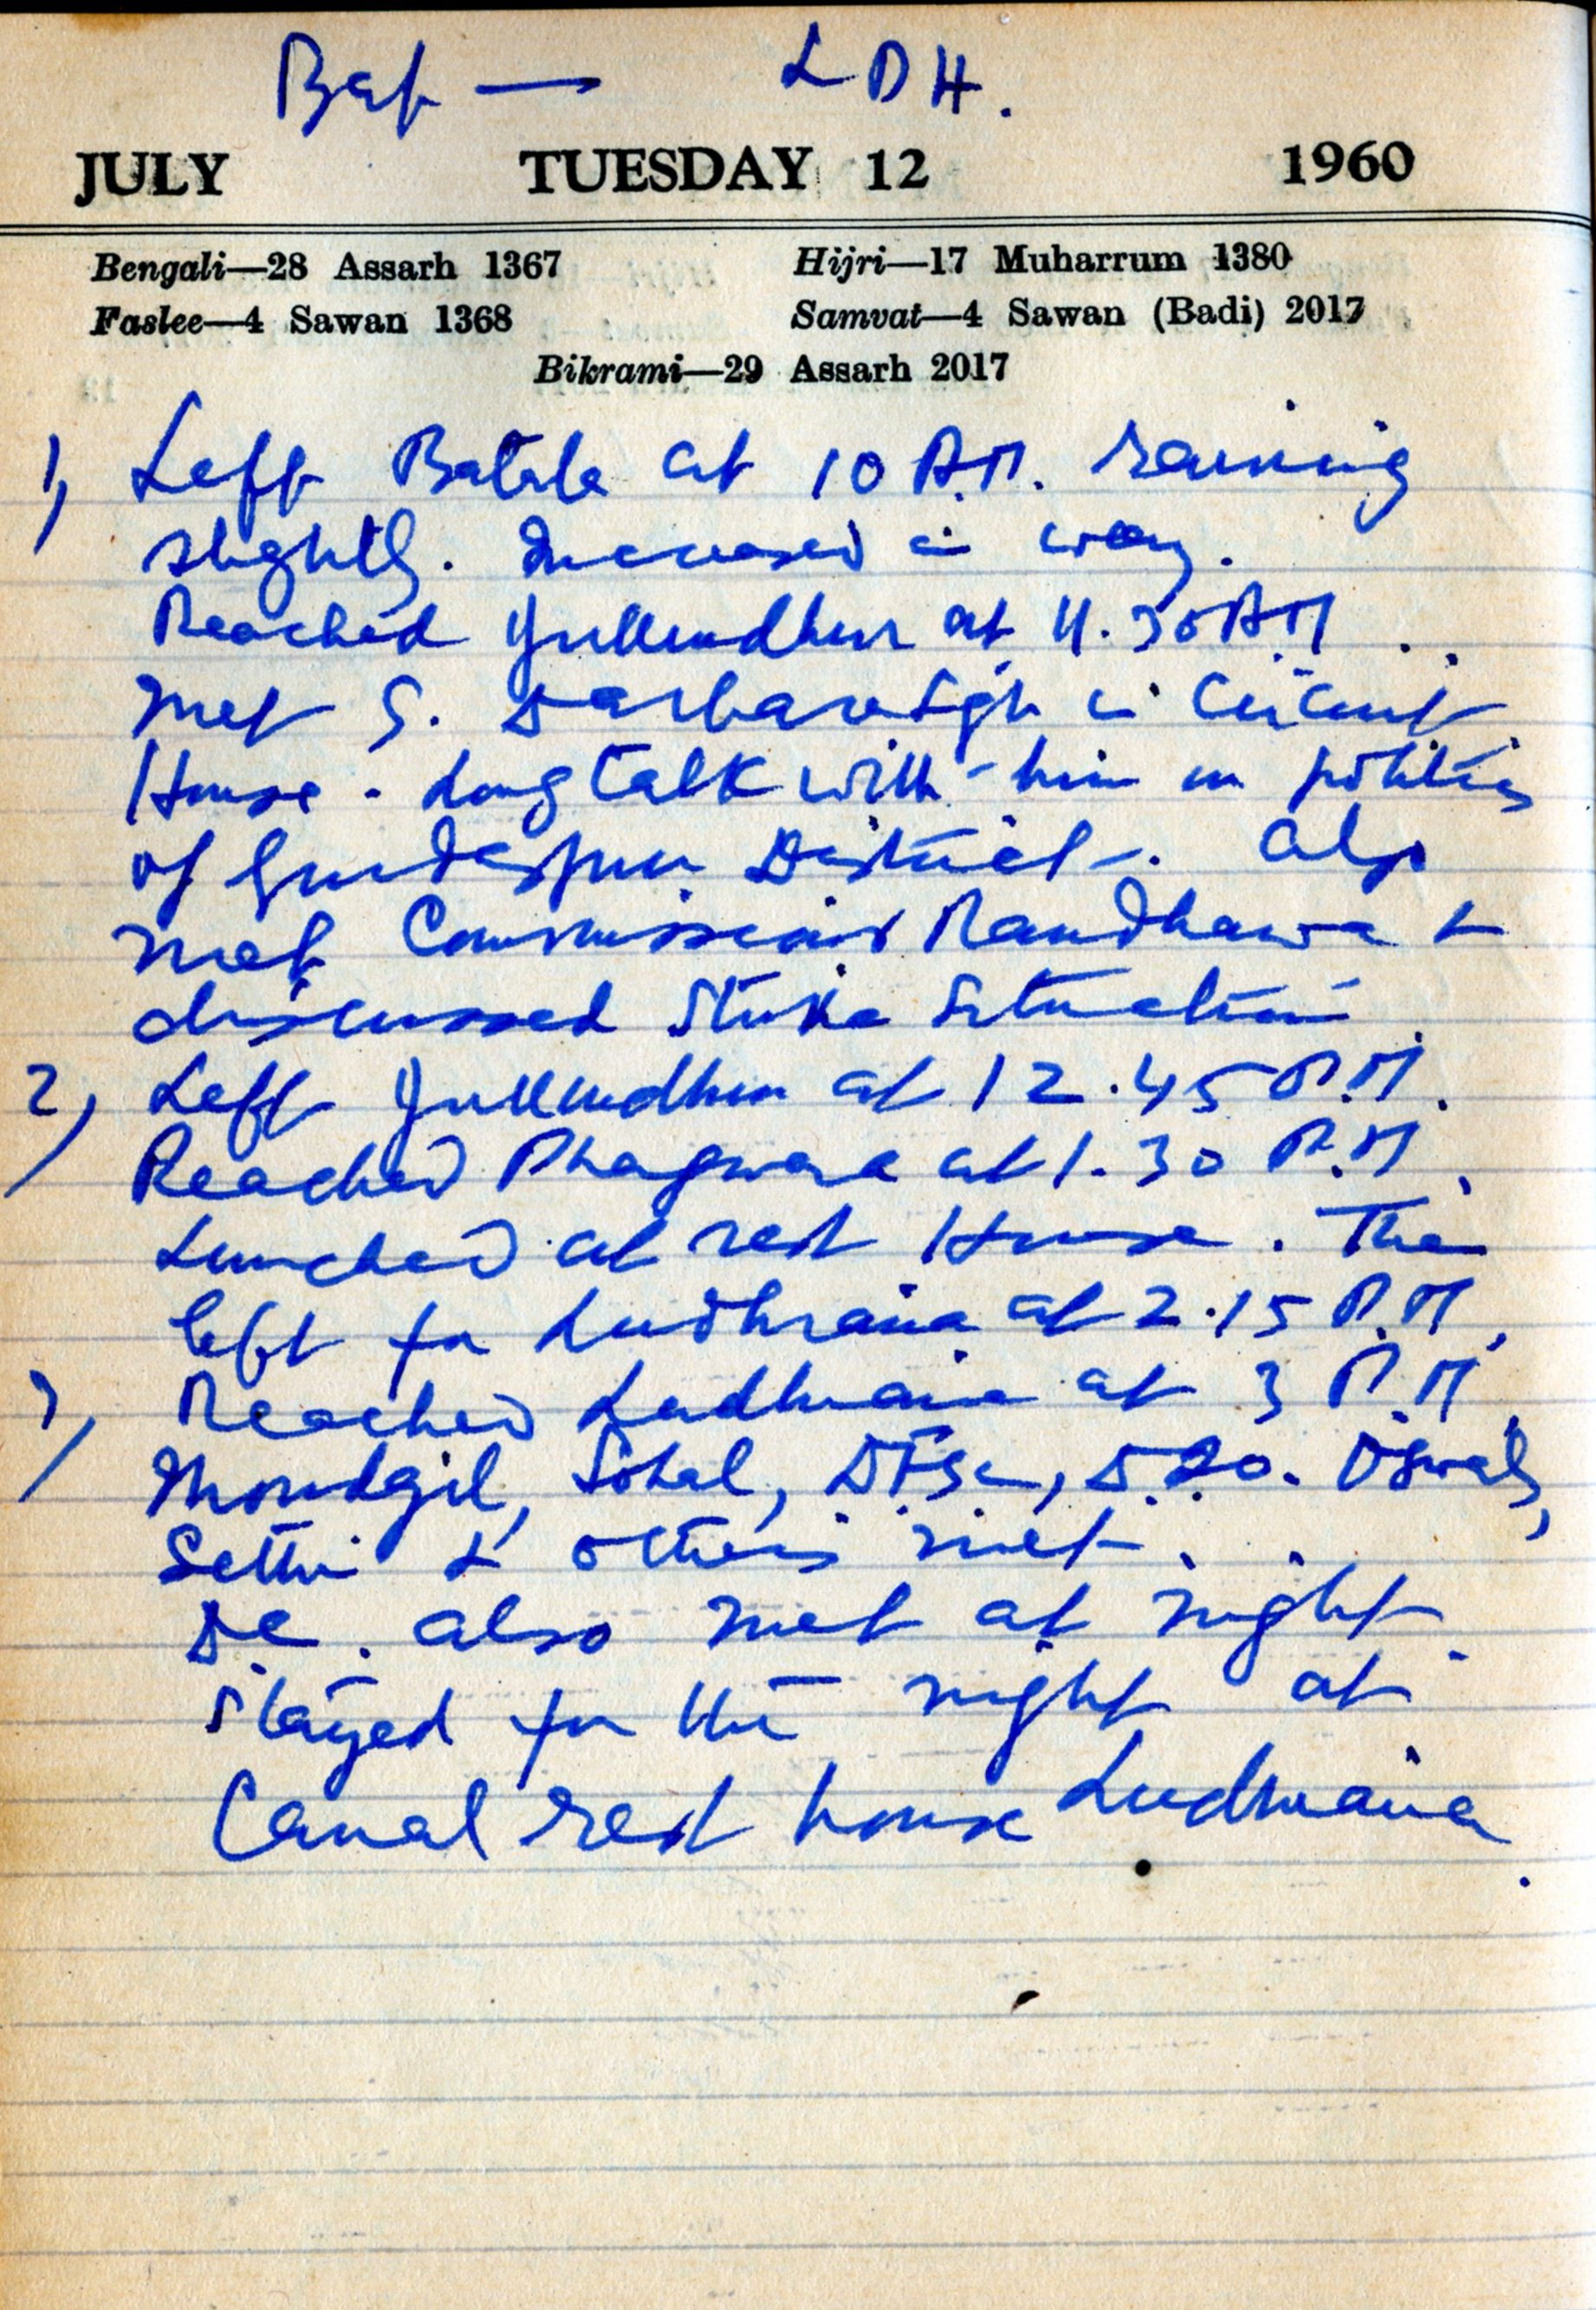 Bat — LDH.
JULY TUESDAY 12 1960
Bengali—28 Assarh 1367 Hijri—17 Muharrum 1380
Faslee—4 Sawan 1368 Samvat—4 Sawan (Badi) 2017
Bikrami—29 Assarh 2017
1) Left Batala at 10 A.M. raining
slightly. Increased in way.
Reached Jullundhur at 11.30 AM.
Met S. Darbara Sgh in Circuit
House. Long talk with him on politics
of Gurdaspur District. Also
met Commissioner Randhawa &
discussed Strike Situation.
2) Left Jullundhur at 12.45 P.M.
Reached Phagwara at 1.30 P.M.
Lunched at rest House. Then
left for Ludhiana at 2.15 P.M.
3) Reached Ludhiana at 3 P.M.
Moudgil, Sohal, D.F.S.C, Oswal,
Sethi & others met.
D.C. also met at night.
Stayed for the night at
Canal rest house Ludhiana.